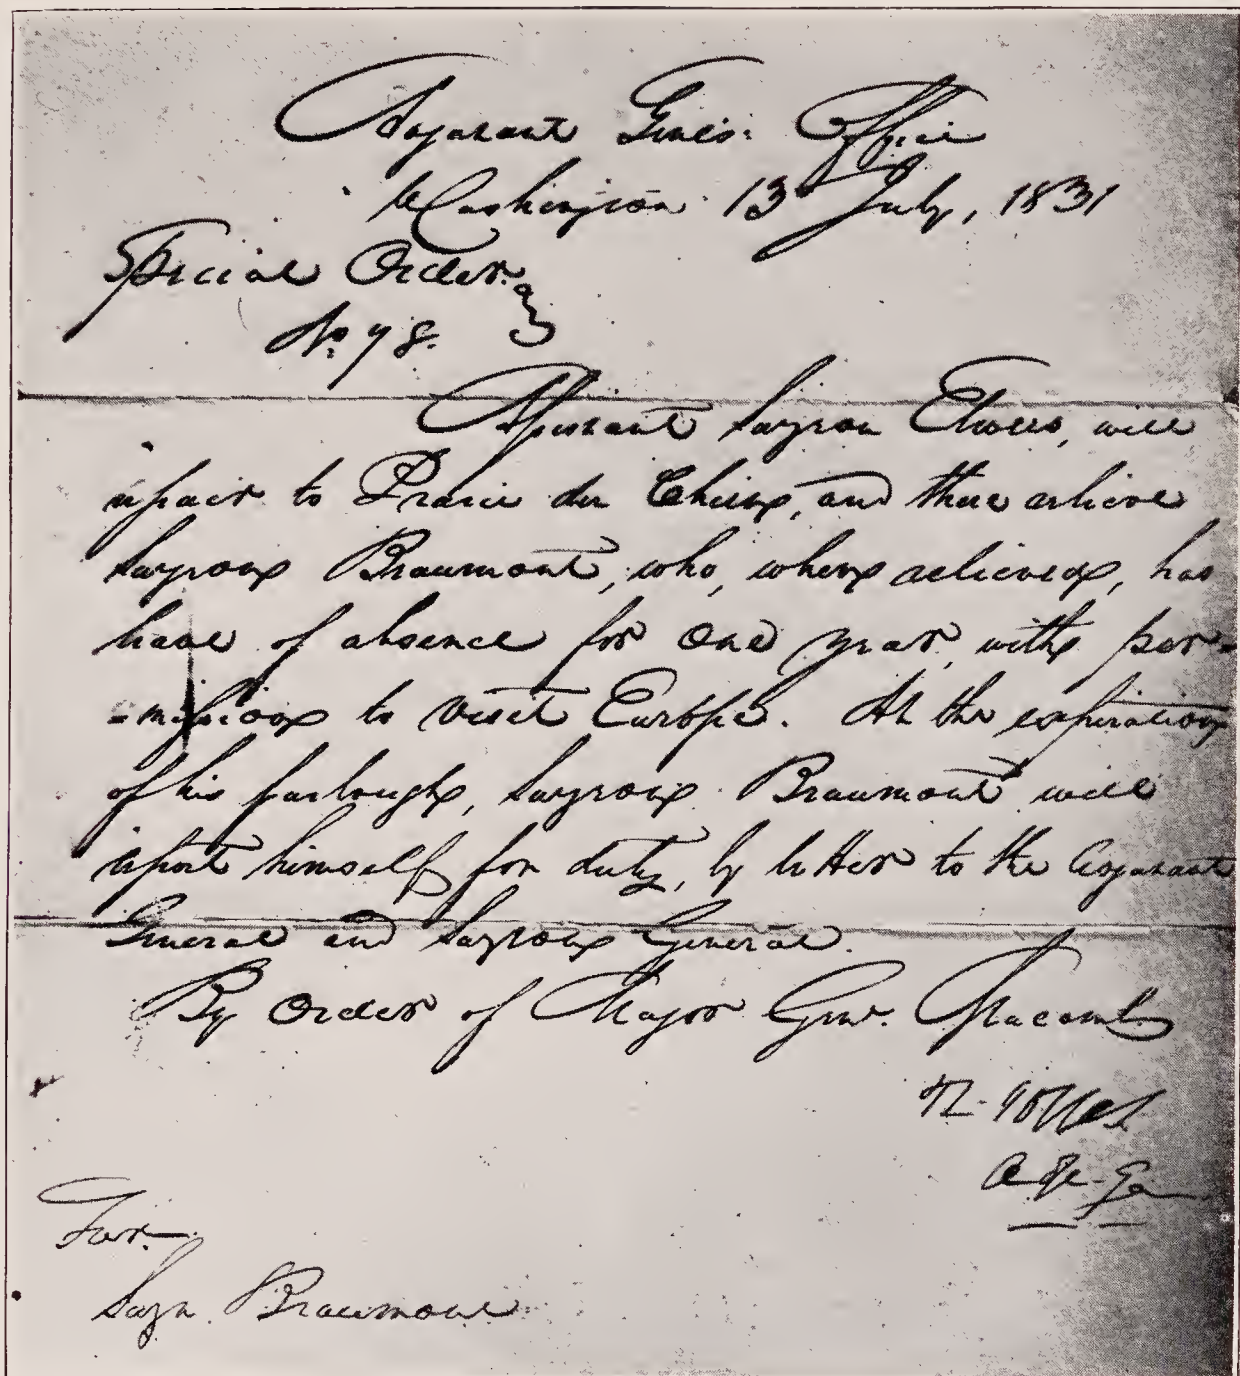 Adjutant Genl's. Office
Washington 13 July, 1831
Special Order
No. 78.
Assistant Surgeon Elwees, will
repair to Prarie du Chien, and there relieve
Surgeon Beaumont, who, when relieved, has
leave of absence for one year, with per-
-mission to visit Europe. At the expiration
of his furlough, Surgeon Beaumont will
report himself for duty, by letter to the Adjutant
General and Surgeon General.
By Order of Major Genr. Macomb
A. Genl
For.
Surgn. Beaumont